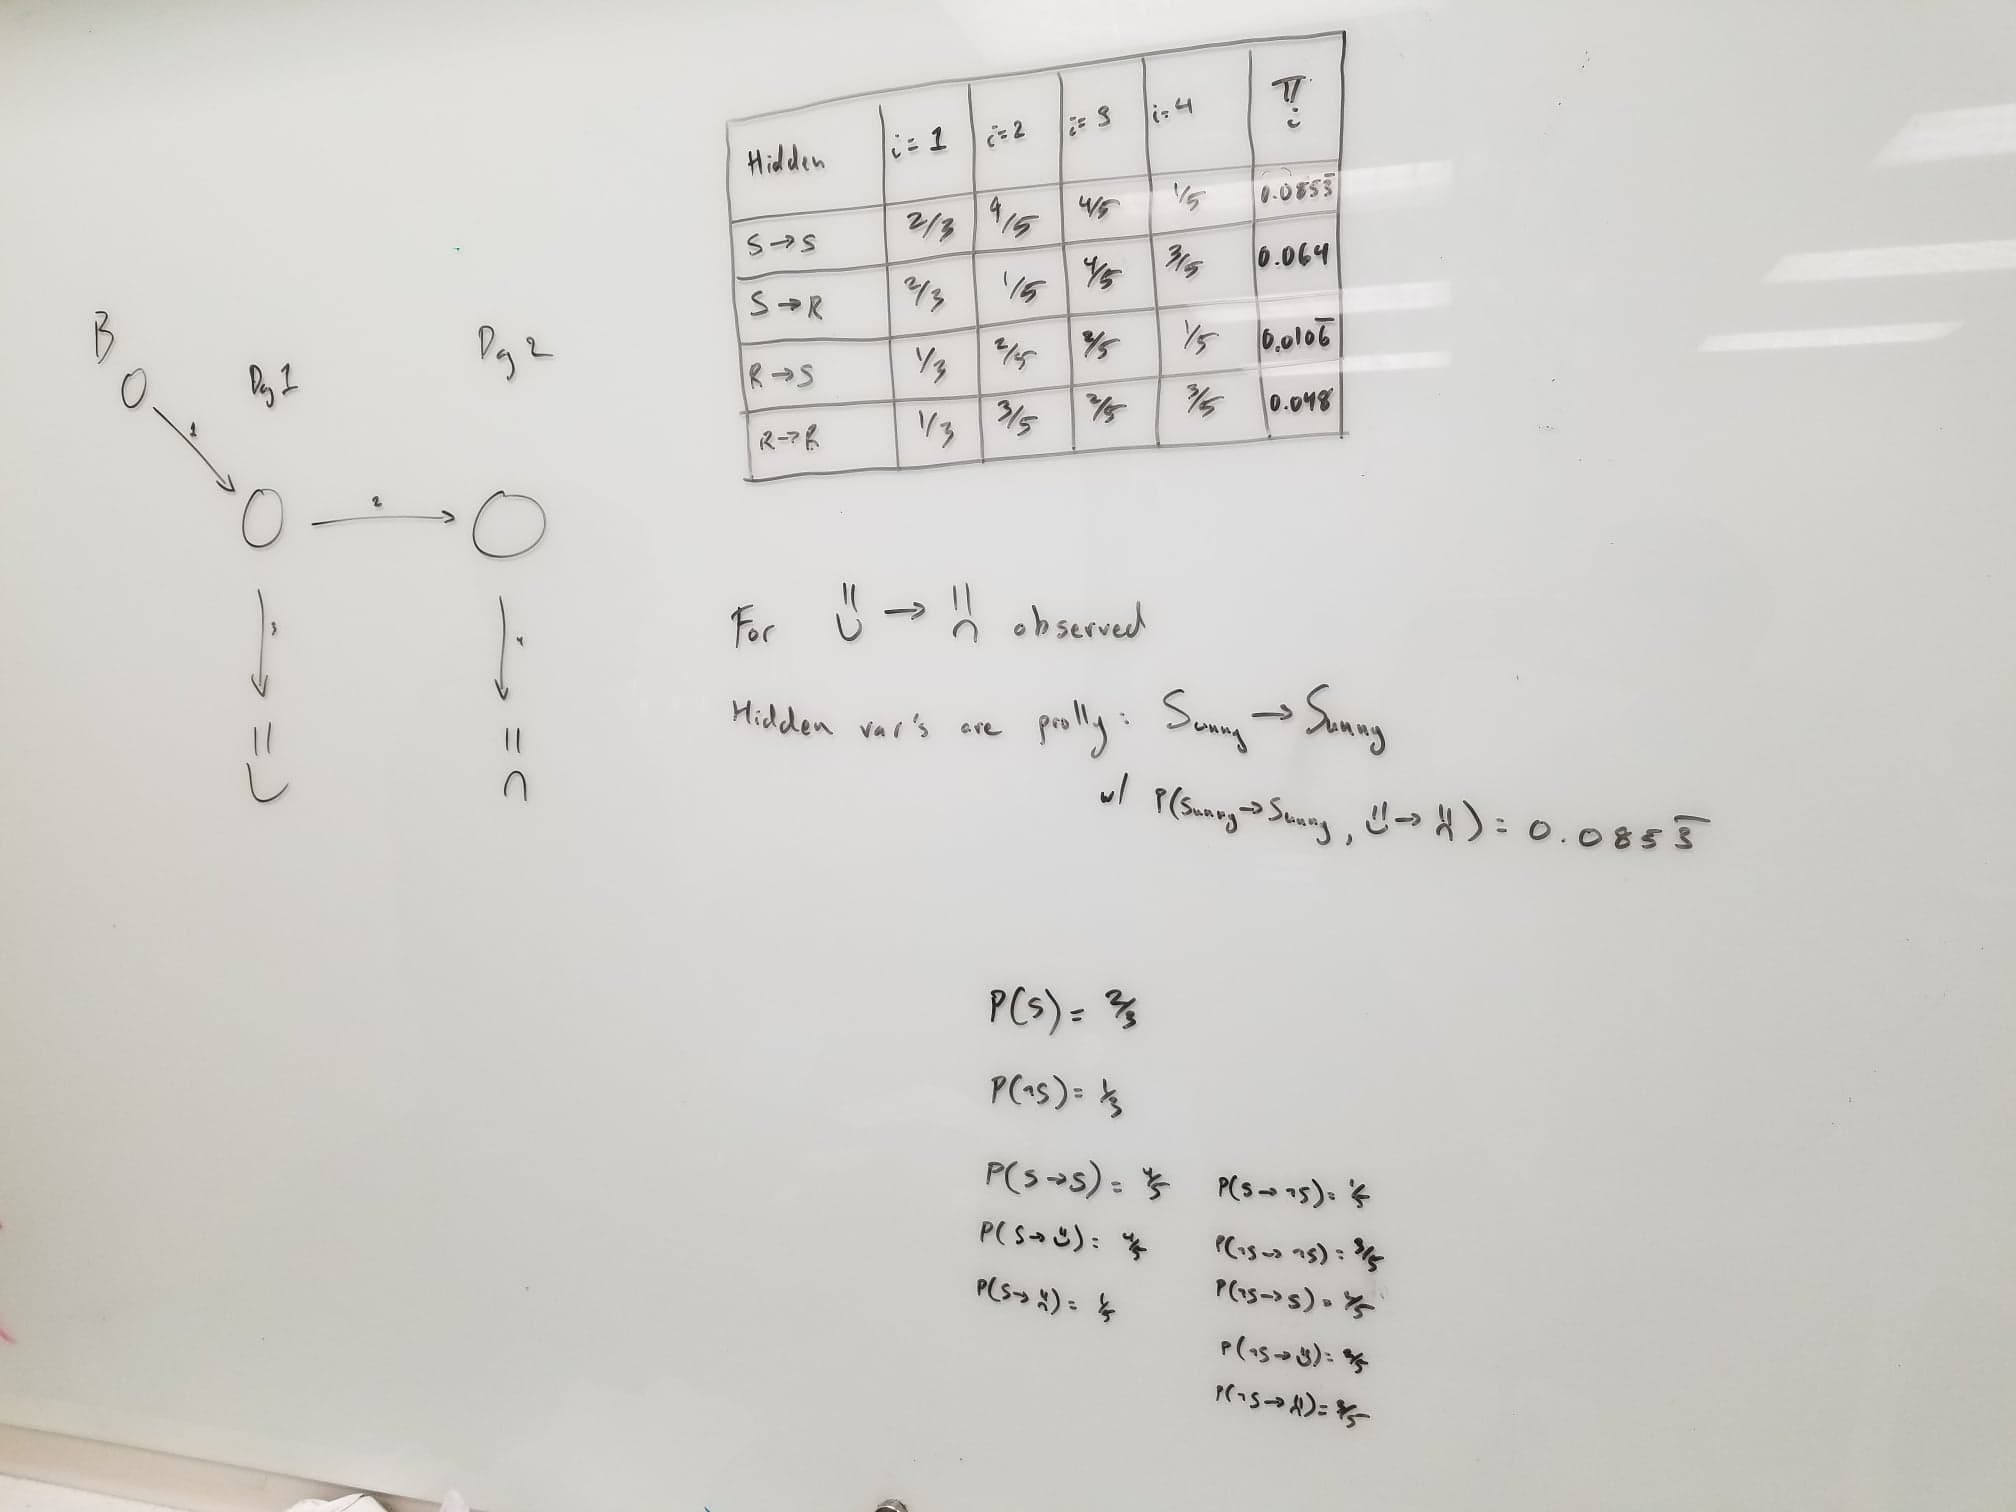 Hidden i=1 i=2 i=3 i=4 π i
S→S 2/3 4/5 4/5 1/5 0.0853̅
S→R 2/3 1/5 4/5 3/5 0.064
R→S 1/3 2/5 2/5 1/5 0.0106̅
R→R 1/3 3/5 2/5 3/5 0.048
B
Dy 1
Dy 2
1
2
3
4
For → observed
Hidden var's are prolly: Sunny → Sunny
w/ P(Sunny→Sunny, →) = 0.0853̅
P(S) = 2/3
P(¬S) = 1/3
P(S→S) = 4/5 P(S→¬S) = 1/5
P(S→ü) = 4/5 P(¬S→¬S) = 3/5
P(S→) = 1/5 P(¬S→S) = 2/5
P(¬S→ü) = 2/5
P(¬S→) = 3/5